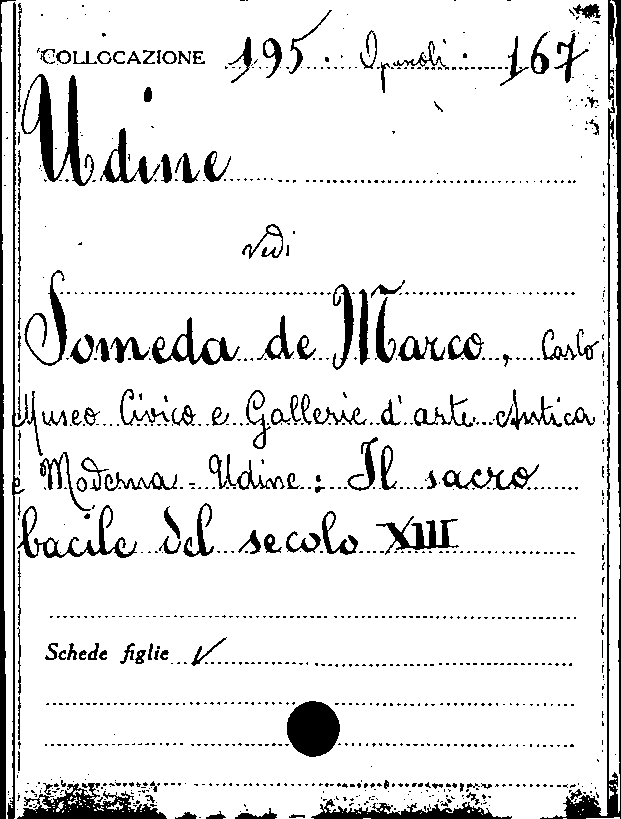 COLLOCAZIONE 195. Opuscoli. 167
Udine
vedi
Someda de Marco, Carlo
Museo Civico e Gallerie d'arte Antica
e Moderna - Udine: Il sacro
bacile del secolo XIII
Schede figlie ✓